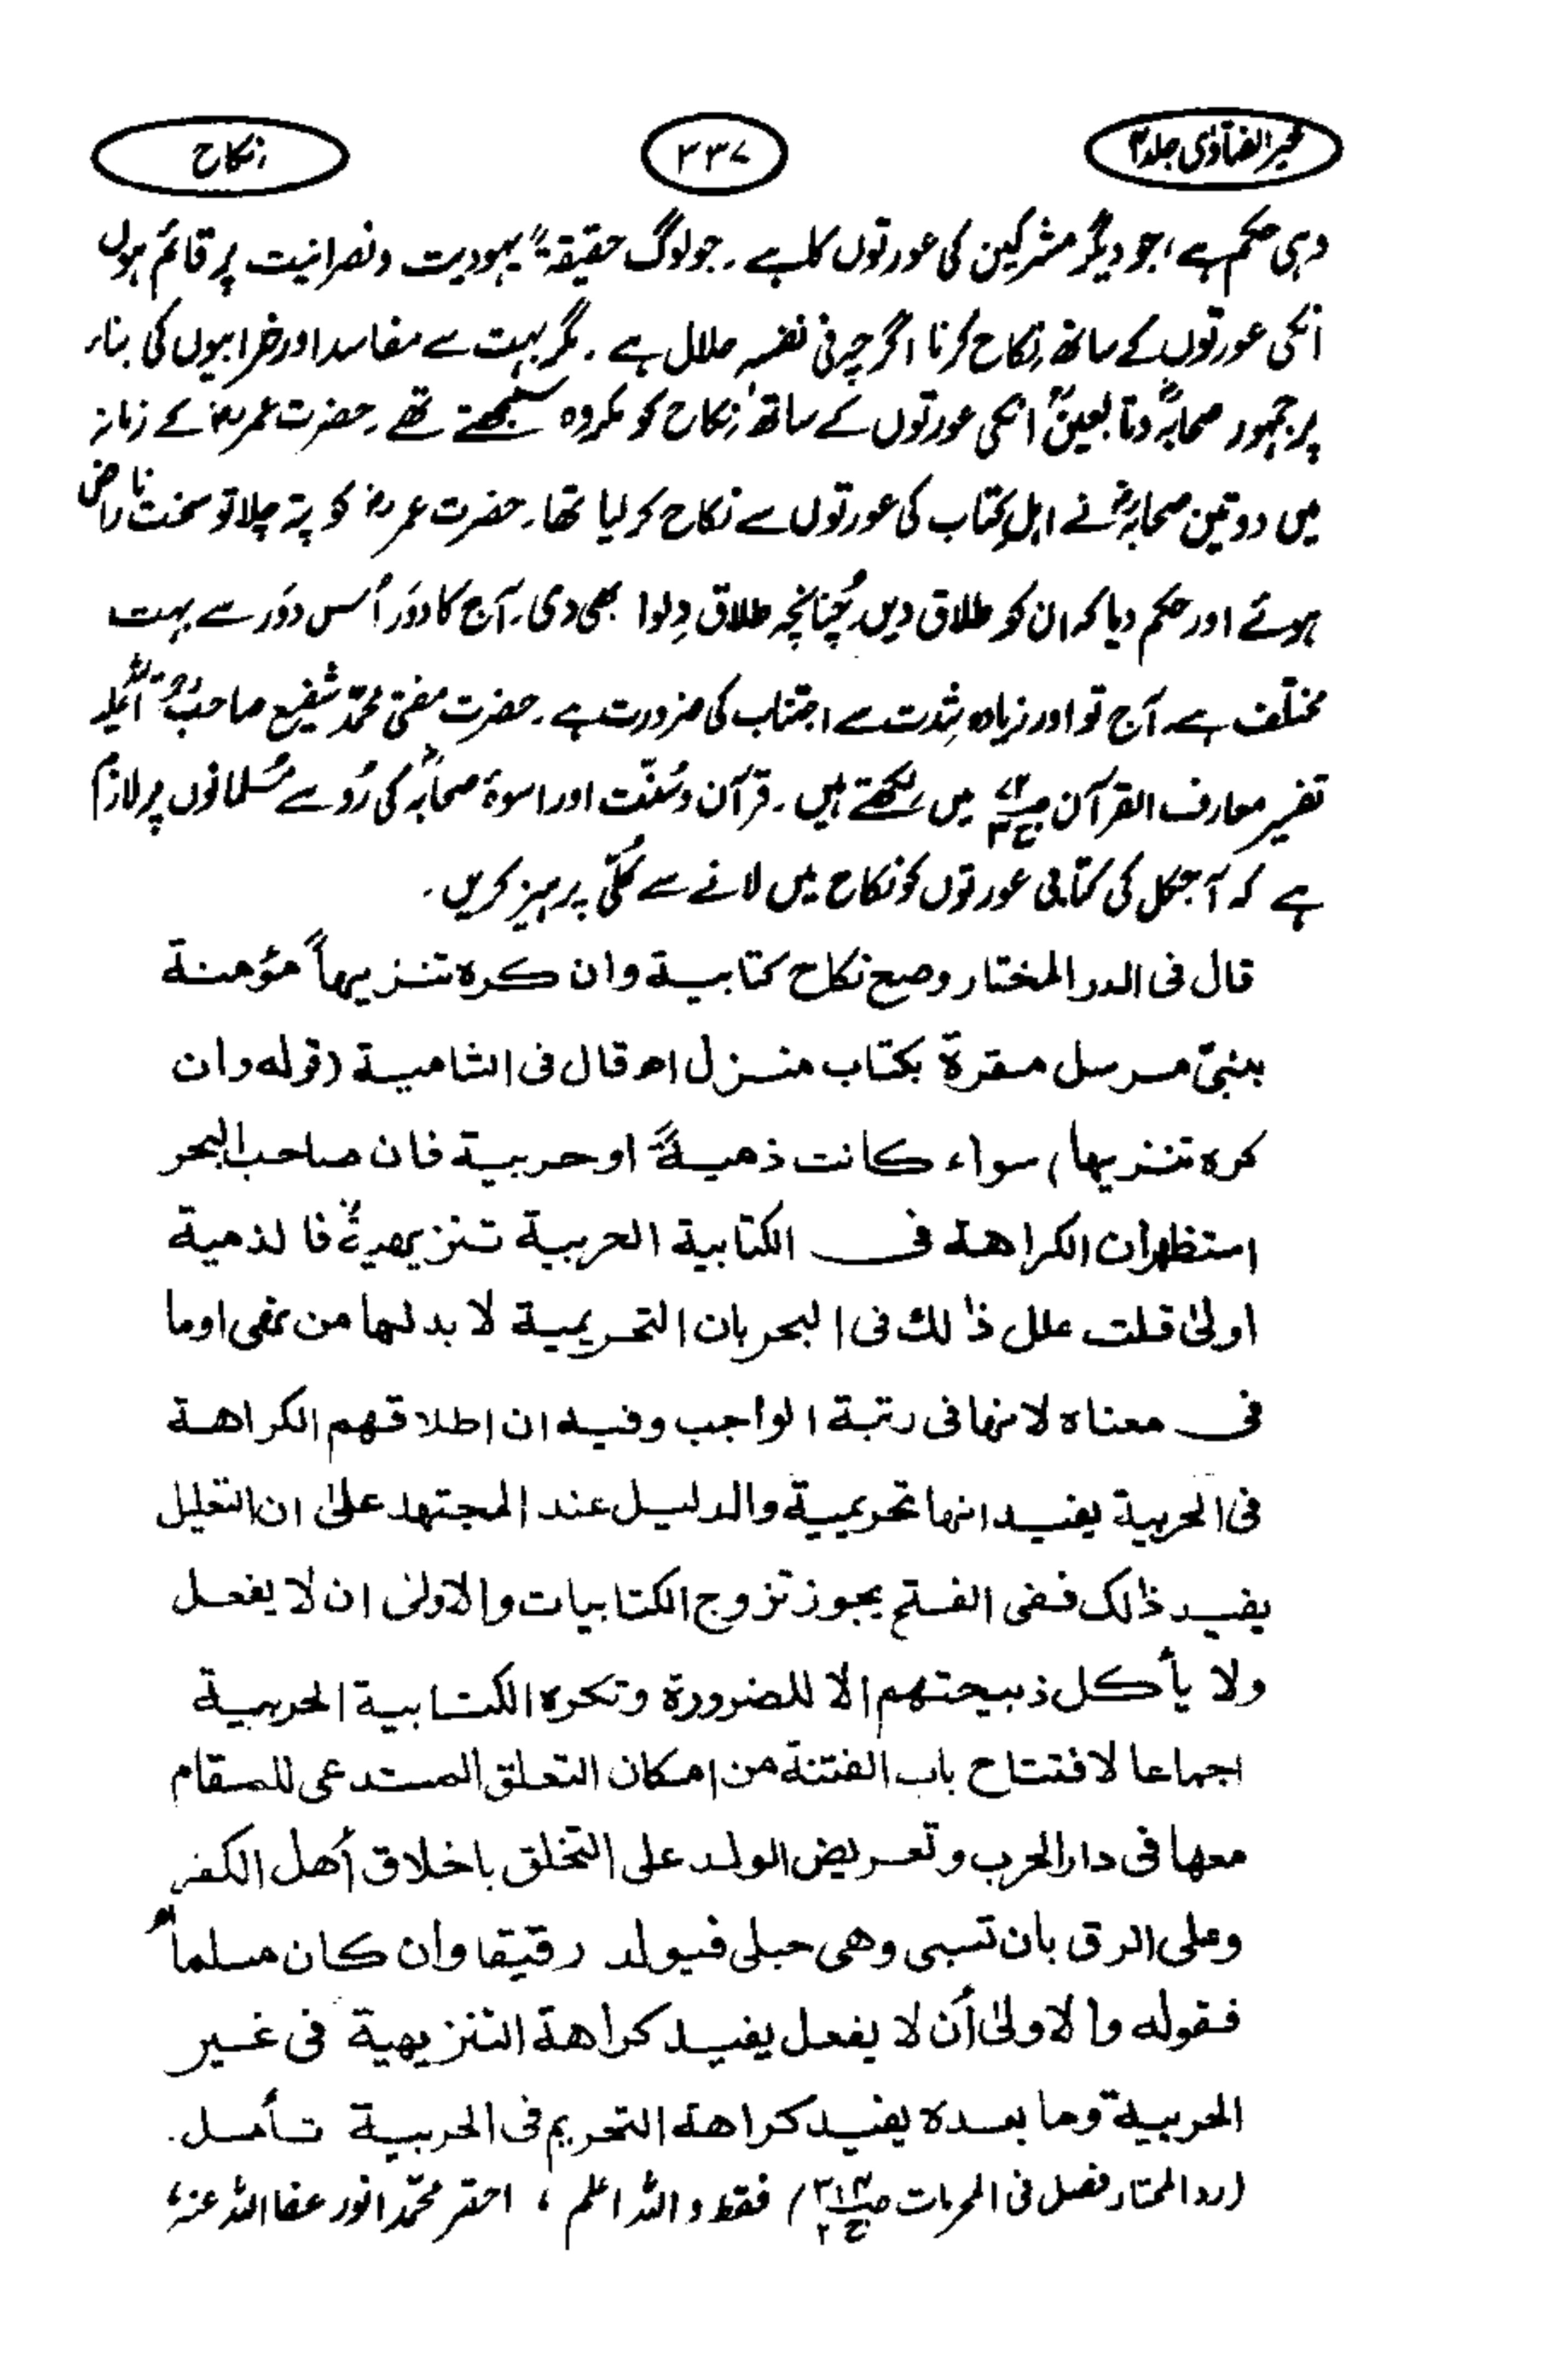 خیر الفتاوٰی جلد ۴
۳۳۷
نکاح
وہی حکم ہے، جو دیگر مشرکین کی عورتوں کا ہے۔ جو لوگ حقیقۃً یہودیت و نصرانیت پر قائم ہوں
انکی عورتوں کے ساتھ نکاح کرنا اگرچہ فی نفسہٖ حلال ہے۔ مگر بہت سے مفاسد اور خرابیوں کی بناء
پر جمہور صحابہؓ و تابعینؒ انکی عورتوں کے ساتھ نکاح کو مکروہ سمجھتے تھے۔ حضرت عمرؓ کے زمانہ
میں دو تین صحابہؓ نے اہلِ کتاب کی عورتوں سے نکاح کر لیا تھا۔ حضرت عمرؓ کو پتہ چلا تو سخت ناراض
ہوئے اور حکم دیا کہ ان کو طلاق دیں چُنانچہ طلاق دِلوا بھی دی۔ آج کا دَور اُس دَور سے بہت
مختلف ہے۔ آج تو اور زیادہ شِدّت سے اجتناب کی ضرورت ہے۔ حضرت مفتی محمد شفیع صاحبؒ
تفسیر معارف القرآن میں لکھتے ہیں۔ قرآن و سُنّت اور اسوۂ صحابہؓ کی رُو سے مُسلمانوں پر لازم
ہے کہ آجکل کی کتابی عورتوں کو نکاح میں لانے سے کُلّی پرہیز کریں۔
قال فی الدر المختار وصح نکاح کتابیة وان کره تنزیهاً مؤمنة
بنبیّ مرسل مقرة بکتاب منزل اھ قال فی الشامیة (قوله وان
کره تنزیها) سواء کانت ذمیةً او حربیة فان صاحب البحر
استظهر ان الکراهة فی الکتابیة الحربیة تنزیهیةٌ فالذمیة
اولیٰ قلت علل ذالك فی البحر بان التحریمیة لا بد لها من نهی اوما
فی معناه لانها فی رتبة الواجب وفیه ان اطلاقهم الکراهة
فی الحربیة یفید انها تحریمیة والدلیل عند المجتهد علیٰ ان التعلیل
یفید ذالک ففی الفتح یجوز تزوج الکتابیات والاولیٰ ان لا یفعل
ولا یأکل ذبیحتهم الا للضرورة وتکره الکتابیة الحربیة
اجماعا لافتتاح باب الفتنة من امکان التعلق المستدعی للمقام
معها فی دار الحرب وتعریض الولد علی التخلق باخلاق أهل الکفر
وعلی الرق بان تسبی وهی حبلی فیولد رقیقا وان کان مسلماً اھ
فقوله والاولیٰ أن لا یفعل یفید کراهة التنزیهیة فی غیر
الحربیة وما بعده یفید کراهة التحریم فی الحربیة تأمل۔
(رد المحتار فصل فی المحرمات ص۳۱۴ ج۲) فقط و اللہ اعلم ، احقر محمّد انور عفا اللہ عنہٗ،